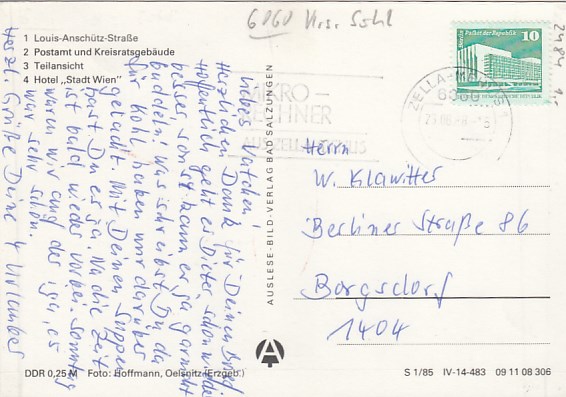 6060 Krs. Suhl
2484
1 Louis-Anschütz-Straße
2 Postamt und Kreisratsgebäude
3 Teilansicht
4 Hotel „Stadt Wien"
Liebes Vatchen,
Herzlichen Dank für Deinen Brief.
Hoffentlich geht es Dieter schon wieder
besser, sonst kann er ja gar nicht
buddeln! was schreibst Du da
für Kohl, haben wir darüber
gelacht. Mit Deinen Suppen
hast Du es ja. Na die Zeit
ist bald wieder vorbei. Sonntag
waren wir auf der iga, es
war sehr schön.
Herzl. Grüße Deine 4 Urlauber
AUSLESE-BILD-VERLAG BAD SALZUNGEN
MIKRO-
RECHNER
AUS ZELLA-MEHLIS
ZELLA-MEHLIS 1
6060
Berlin, Palast der Republik
10
DDR
Herrn
W. Klawitter
Berliner Straße 86
Borgsdorf
1404
A
DDR 0,25 M Foto: Hoffmann, Oelsnitz (Erzgeb.)
S 1/85 IV-14-483 09 11 08 306